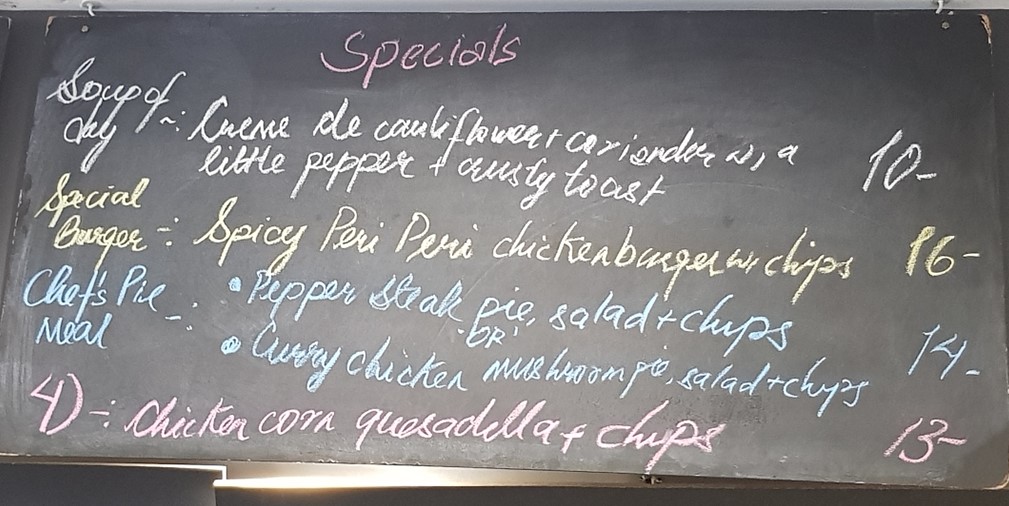 Specials
Soup of
day ~: Creme de cauliflower + coriander w, a
little pepper + crusty toast 10-
Special
Burger -: Spicy Peri Peri chickenburger w chips 16-
Chef's Pie -: • Pepper steak pie, salad + chips
Meal 'OR' 14-
• Curry chicken mushroom pie, salad + chips
4) -: Chicken corn quesadella + chips 13-